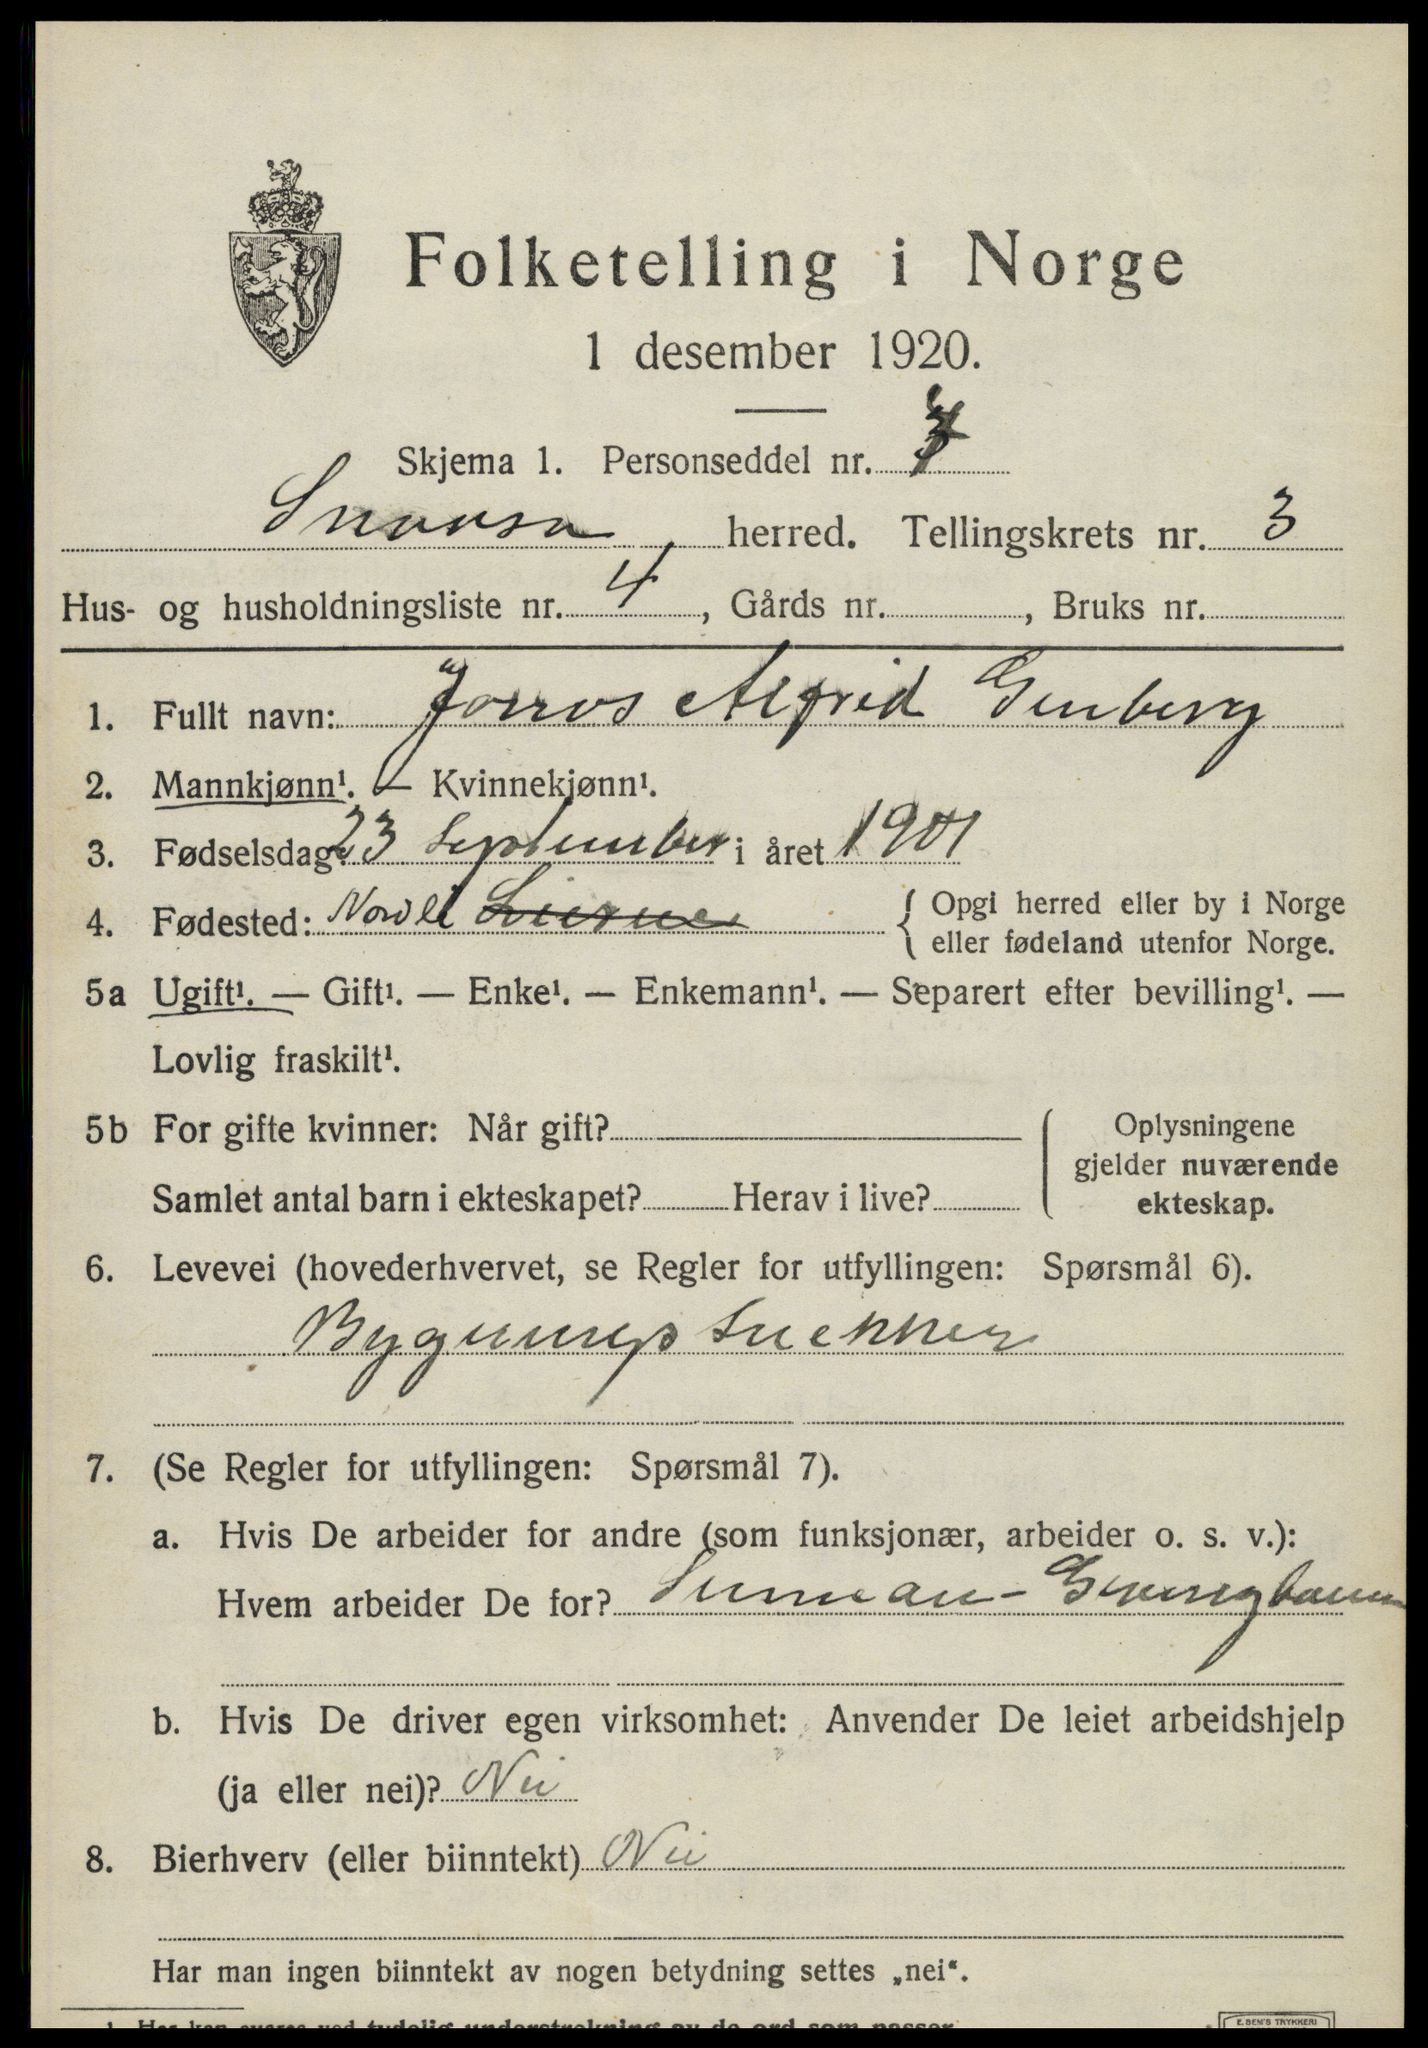 Folketelling i Norge
1 desember 1920.
Skjema 1. Personseddel nr.
Snaasa herred. Tellingskrets nr. 3
Hus- og husholdningsliste nr. 4, Gårds nr. , Bruks nr.
1. Fullt navn: Alfrid Genberg
2. Mannkjønn¹. — Kvinnekjønn¹.
3. Fødselsdag: 23 September i året 1901
4. Fødested: Nordli Lierne { Opgi herred eller by i Norge
eller fødeland utenfor Norge.
5a Ugift¹. — Gift¹. — Enke¹. — Enkemann¹. — Separert efter bevilling¹. —
Lovlig fraskilt¹.
5b For gifte kvinner: Når gift?
Samlet antal barn i ekteskapet? Herav i live?
Oplysningene
gjelder nuværende
ekteskap.
6. Levevei (hovederhvervet, se Regler for utfyllingen: Spørsmål 6).
Bygningssnekker
7. (Se Regler for utfyllingen: Spørsmål 7).
a. Hvis De arbeider for andre (som funksjonær, arbeider o. s. v.):
Hvem arbeider De for? Sunnan-Grongbanen
b. Hvis De driver egen virksomhet: Anvender De leiet arbeidshjelp
(ja eller nei)? Nei
8. Bierhverv (eller biinntekt) Nei
Har man ingen biinntekt av nogen betydning settes „nei“.